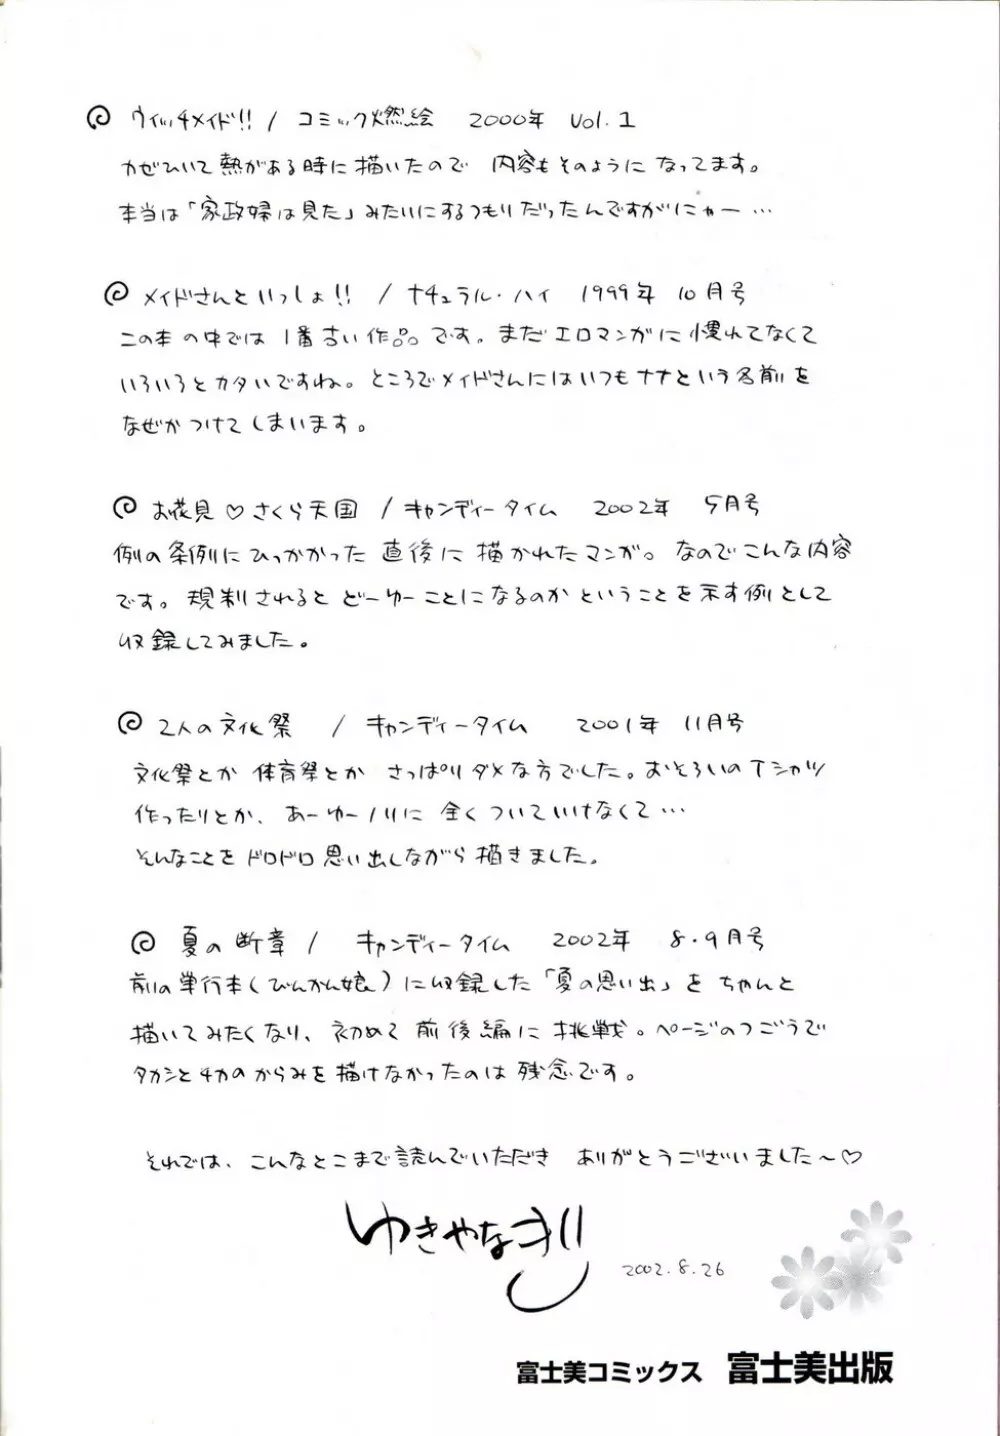 ウィッチメイド!! / コミック燃絵 2000年 Vol.1
カゼひいて熱がある時に描いたので 内容もそのようになってます。
本当は「家政婦は見た」みたいにするつもりだったんですがにゃー…
メイドさんといっしょ!! / ナチュラル・ハイ 1999年 10月号
この本の中では 1番古い作品です。まだエロマンガに慣れてなくて
いろいろとカタいですね。ところでメイドさんにはいつもナナという名前を
なぜかつけてしまいます。
お花見♡さくら天国 / キャンディータイム 2002年 5月号
例の条例にひっかかった直後に描かれたマンガ。なのでこんな内容
です。規制されるとどーゆーことになるのかということを示す例として
収録してみました。
2人の文化祭 / キャンディータイム 2001年 11月号
文化祭とか体育祭とか さっぱりダメな方でした。おそろいのTシャツ
作ったりとか、あーゆーノリに全くついていけなくて…
そんなことをドロドロ思い出しながら描きました。
夏の断章 / キャンディータイム 2002年 8・9月号
前の単行本(びんかん娘)に収録した「夏の思い出」をちゃんと
描いてみたくなり、初めて前後編に挑戦。ページのつごうで
タカシとチカのからみを描けなかったのは残念です。
それでは、こんなとこまで読んでいただき ありがとうございました〜♡
ゆきやなぎ
2002.8.26
富士美コミックス 富士美出版